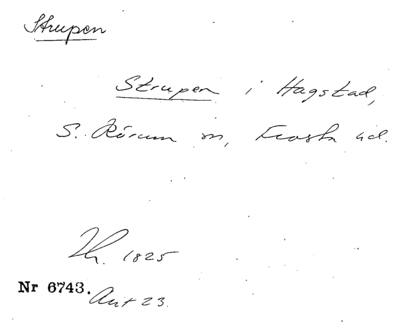 Strupen
Strupen i Hagstad,
S. Rörum sn, Frosta hd.
Th. 1825
Nr 6743.
Avt 23.